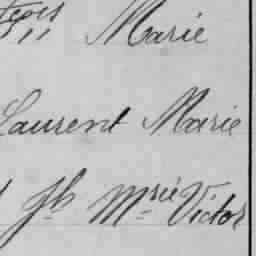 Marie
Laurent Marie
Jh Mrie Victor